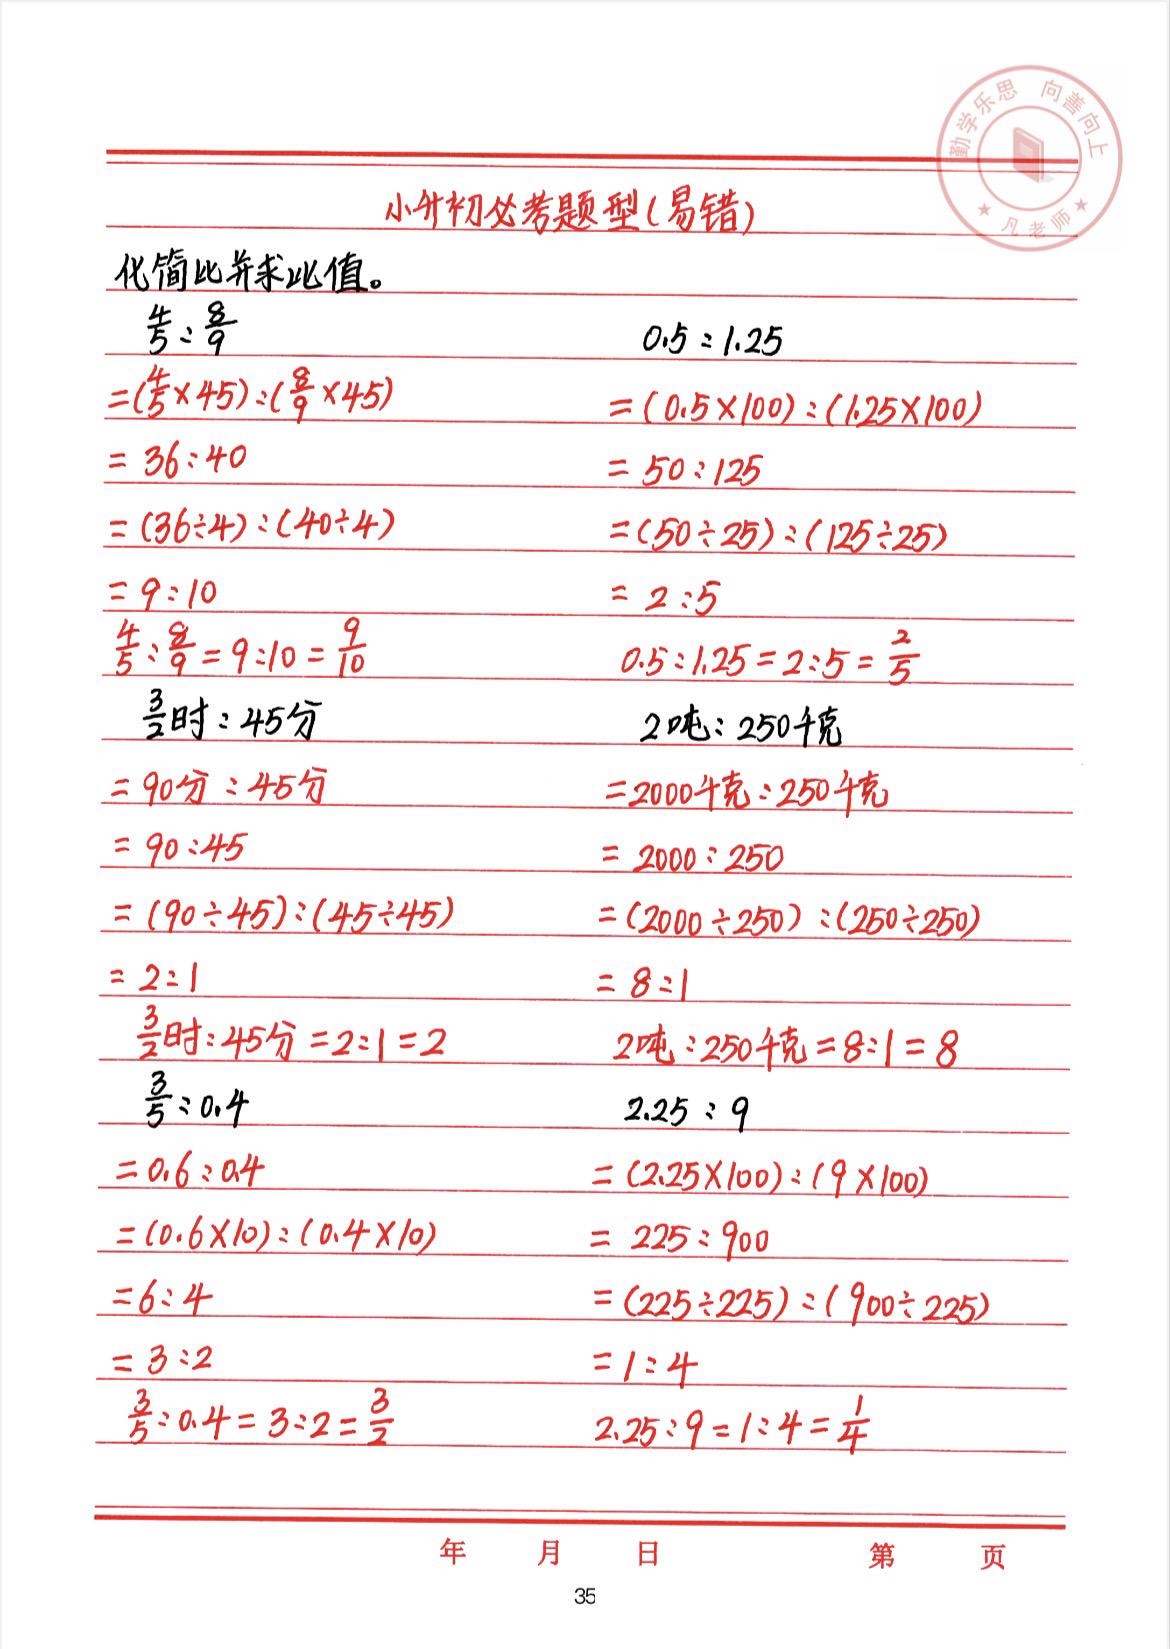 勤学乐思 向善向上
★ 凡老师 ★
小升初必考题型(易错)
化简比并求比值。
4/5 : 8/9
=(4/5×45):(8/9×45)
=36:40
=(36÷4):(40÷4)
=9:10
4/5:8/9=9:10=9/10
0.5:1.25
=(0.5×100):(1.25×100)
=50:125
=(50÷25):(125÷25)
=2:5
0.5:1.25=2:5=2/5
3/2时:45分
=90分:45分
=90:45
=(90÷45):(45÷45)
=2:1
3/2时:45分=2:1=2
2吨:250千克
=2000千克:250千克
=2000:250
=(2000÷250):(250÷250)
=8:1
2吨:250千克=8:1=8
3/5:0.4
=0.6:0.4
=(0.6×10):(0.4×10)
=6:4
=3:2
3/5:0.4=3:2=3/2
2.25:9
=(2.25×100):(9×100)
=225:900
=(225÷225):(900÷225)
=1:4
2.25:9=1:4=1/4
年 月 日 第 页
35